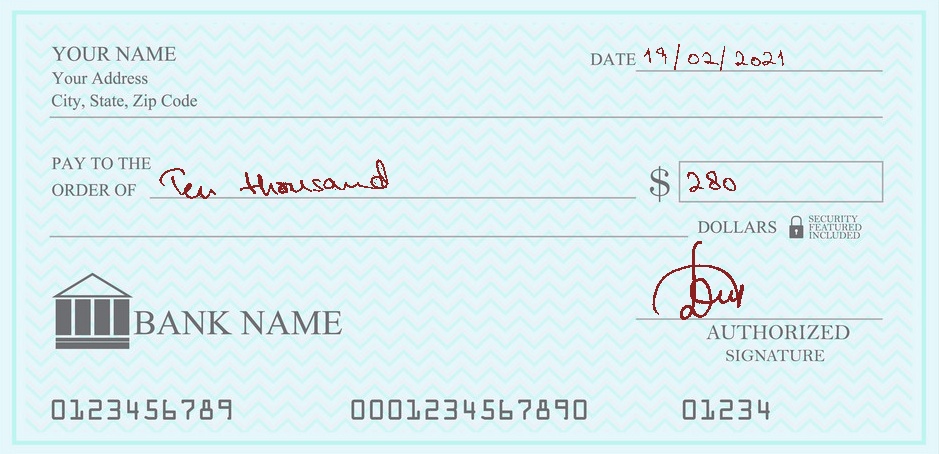 YOUR NAME
Your Address
City, State, Zip Code
DATE 19/02/2021
PAY TO THE
ORDER OF Ten thousand
$ 280
DOLLARS
SECURITY
FEATURED
INCLUDED
BANK NAME
AUTHORIZED
SIGNATURE
0123456789 0001234567890 01234